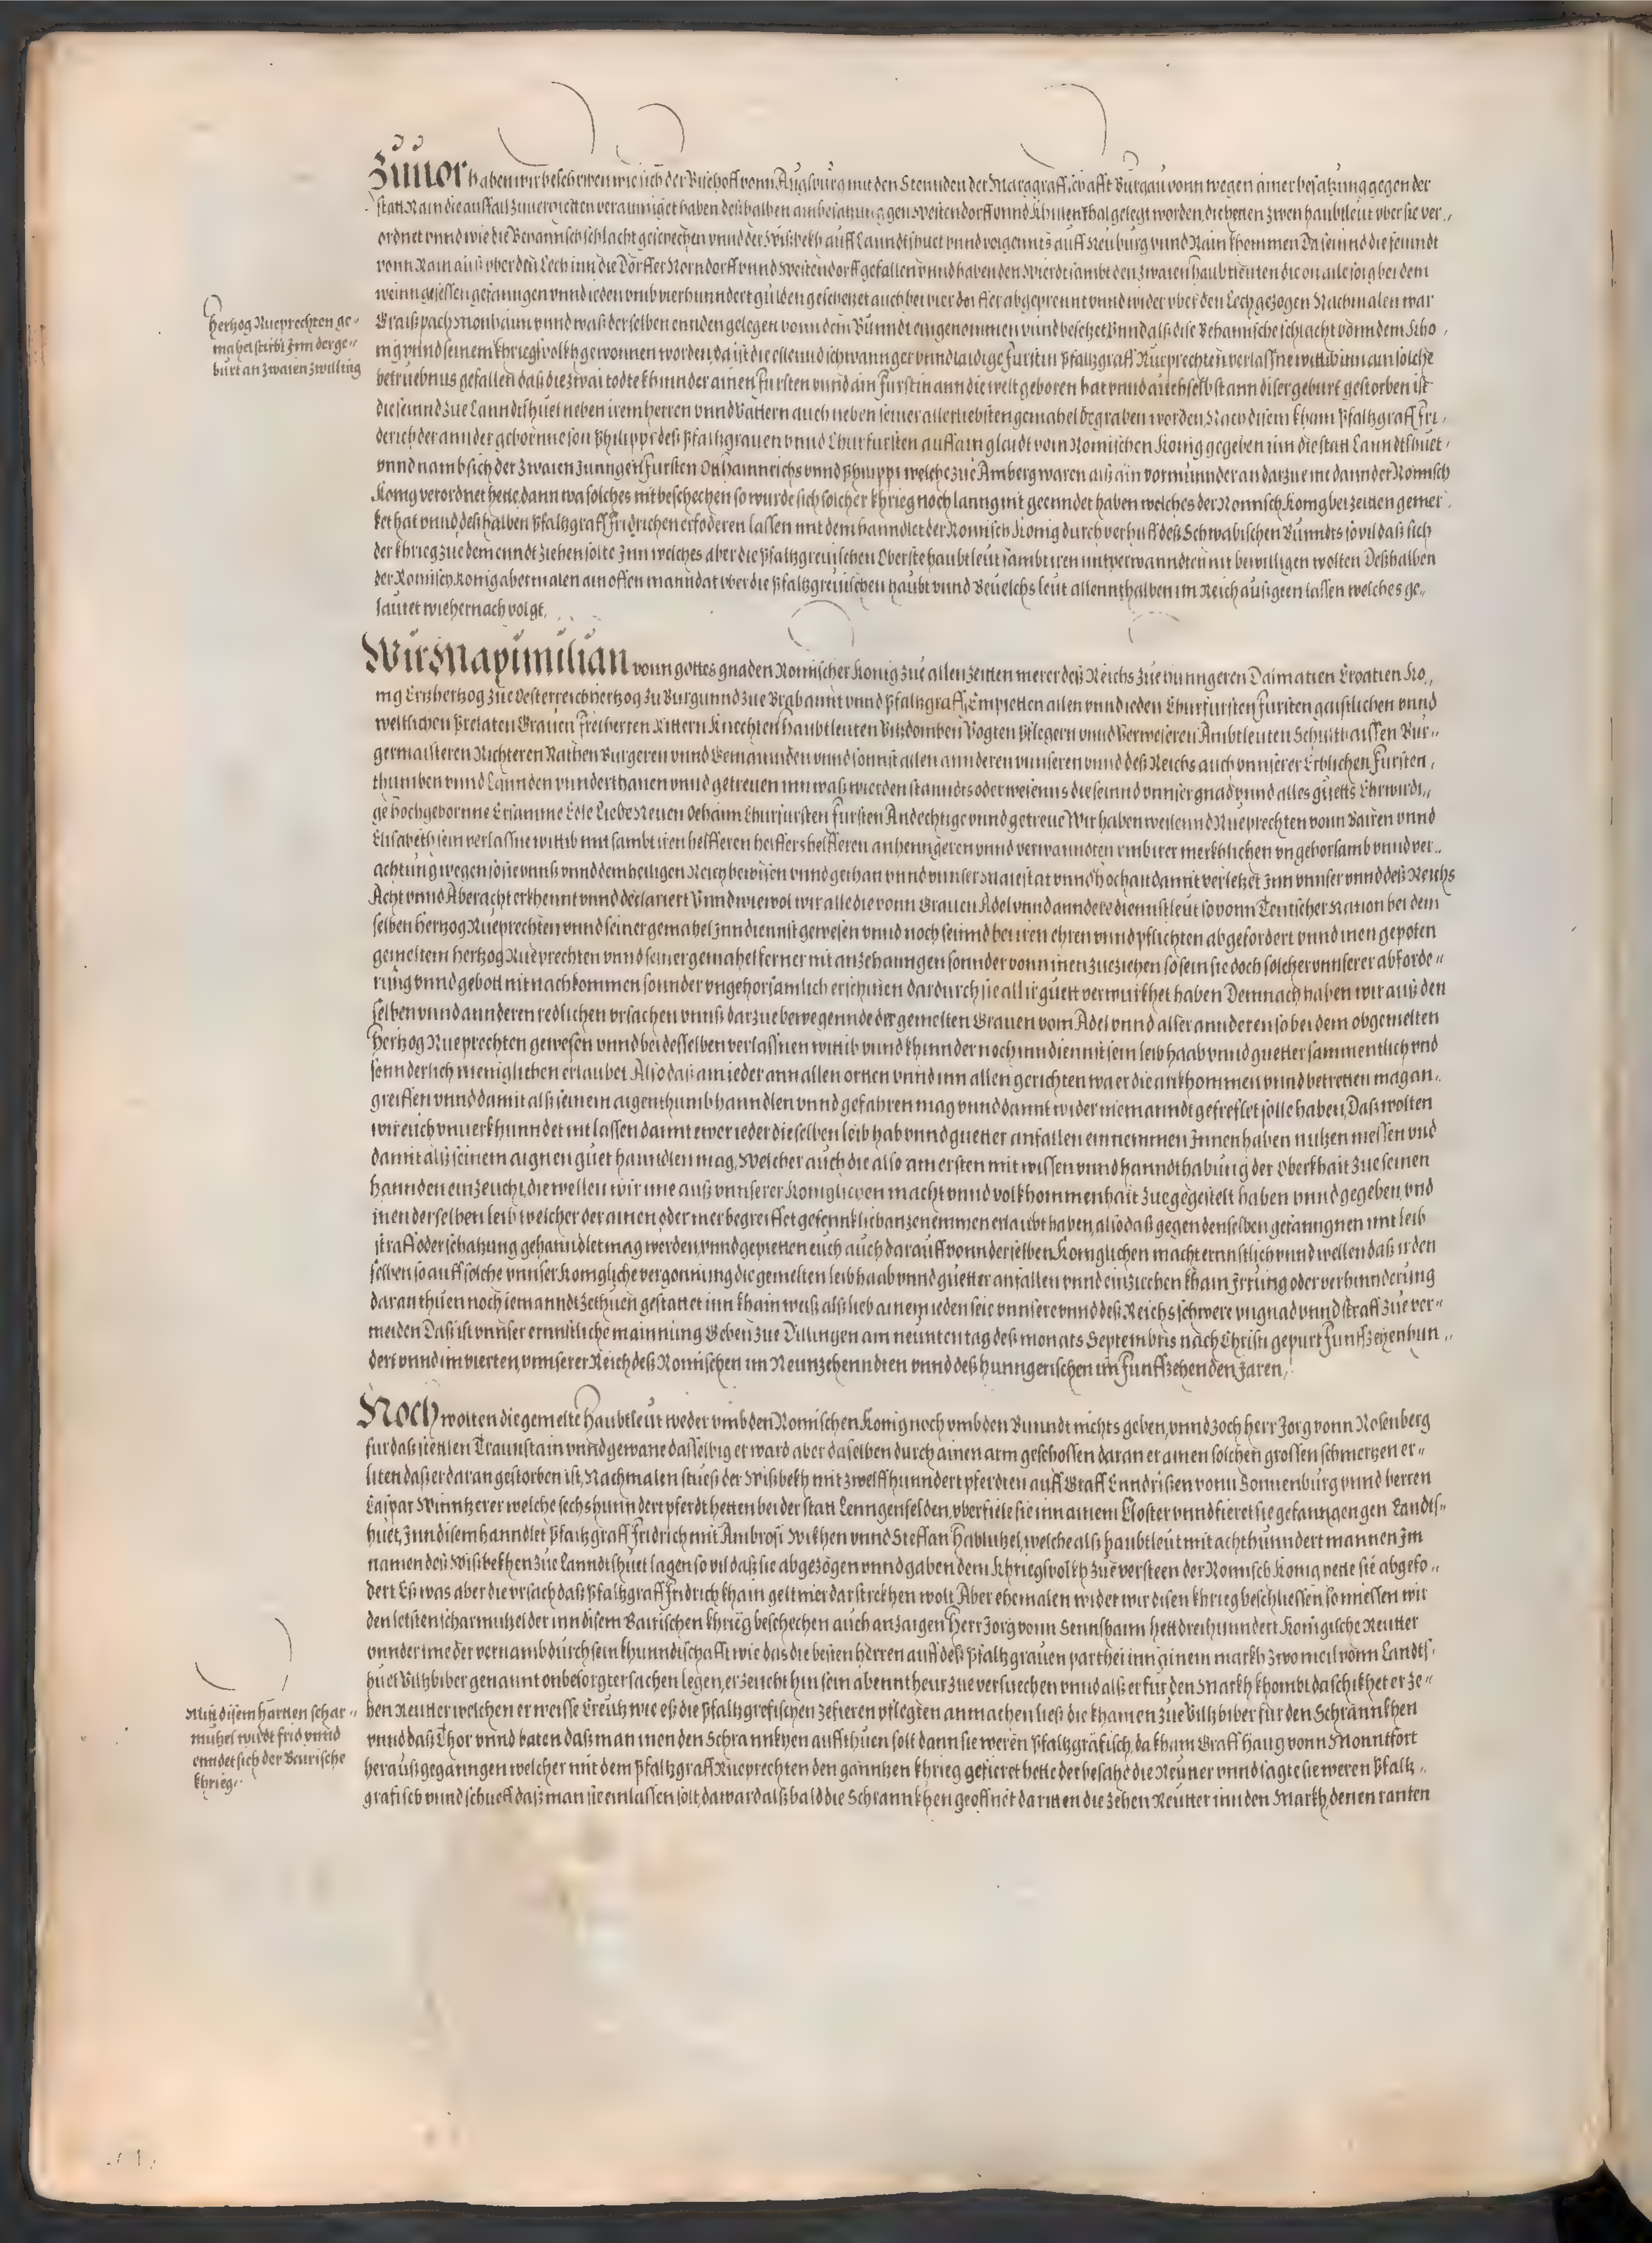 Zuuor haben wir beschriben wie sich der Bischoff vonn Augsburg mit den Stennden der Marggraffschafft Burgau vonn wegen ainer besatzung gegen der
statt Rain die ausfall zuuerhietten verainiget haben deßhalben ain besatzung gen Westendorff vnnd gelegt worden, die hetten zwen haubtleut vber sie ver-
ordnet vnnd wie die Behannisch schlacht geschechen vnnd der Wißbekh auff Lanndtshuet vnnd volgennts auff Neuburg vnnd Rain khommen Da seinnd die feinndt
vonn Rain auß vber den Lech inn die Dörffer Norndorff vnnd Westendorff gefallen vnnd haben den Wierdt sambt den zwaien haubtleuten die on alle sorg bei dem
wein gesessen gefanngen vnnd ieden vmb vierhunndert gulden geschetzet auch bei vier dörffer abgeprennt vnnd wider vber den Lech gezogen Nachmalen war
Graißpach Monhaim vnnd waß derselben ennden gelegen vonn dem Bunndt eingenommen vnnd besetzet Vnnd alß dise Behannische schlacht vonn dem Kho-
nig vnnd seinem khriegsvolkh gewonnen worden, da ist die ellend schwannger vnnd laidige furstin Pfaltzgraff Rueprechten verlassne wittib inn ain solche
betruebnus gefallen daß die zwai todte khinnder ainen fursten vnnd ain furstin ann die welt geboren hat vnnd auch selbst ann diser geburt gestorben ist
die seinnd zue Lanndtshuet neben irem herren vnnd Vattern auch neben seiner allerliebsten gemahel begraben worden, Nach disem kham Pfaltzgraff Fri-
derich der annder geborne son Philippi deß Pfaltzgrauen vnnd Churfursten auff ain glaidt vom Romischen Konig gegeben inn die statt Lanndtshuet
vnnd namb sich der zwaien junngen fursten Othainrichs vnnd Philippi welche zue Amberg waren alß ain vormunnder an darzue ine dann der Romisch
Konig verordnet hette, dann wa solches nit beschechen so wurde sich solcher khrieg noch lanng nit geenndet haben welches der Romisch Konig bei zeitten gemer-
ket hat vnnd deßhalben Pfaltzgraff Fridrichen erfoderen lassen mit dem hanndlet der Romisch Konig durch verhilff deß Schwabischen Bunndts so vil daß sich
der khrieg zue dem enndt ziehen solte Inn welches aber die Pfaltzgreuischen Oberste haubtleut sambt iren mitverwanndten nit bewilligen wolten Deßhalben
der Romisch Konig abermalen ain offen manndat vber die Pfaltzgreuischen haubt vnnd Beuelchs leut allennthalben im Reich außgeen lassen welches ge-
lautet wie hernach volgt.
Hertzog Rueprechten ge-
mahel stirbt Inn der ge-
burt an zwaien zwilling
Wir Maximilian vonn gottes gnaden Romischer Konig zue allen zeitten merer deß Reichs zue Hunngeren Dalmatien Croatien Ko-
nig Ertzhertzog zue Oesterreich hertzog zu Burgunnd zue Brabannt vnnd Pfaltzgraff, Empietten allen vnnd ieden Churfursten Fursten gaistlichen vnnd
weltlichen Prelaten Grauen freiherren Rittern Knechten haubtleuten Vitzdomben Vogten Pflegern vnnd Verweseren Ambtleuten Schulthaissen Bur-
germaisteren Richteren Rathen Burgeren vnnd Gemainden vnnd sonnst allen annderen vnnseren vnnd deß Reichs auch vnnserer Erblichen Fursten-
thumben vnnd Lannden vnnderthanen vnnd getreuen inn waß wierden stanndts oder wesenns die seinnd vnnser gnad vnnd alles guetts Ehrwirdi-
ge hochgeborne Ersamme Edle Liebe Neuen Oehaim Churfursten fursten Andechtige vnnd getreue Wir haben weilennd Rueprechten vonn Bairen vnnd
Elisabeth sein verlassne wittib mit sambt iren helfferen helffershelfferen anhenngeren vnnd verwanndten vmb irer merkhlichen vngehorsamb vnnd ver-
achtung wegen so sie vnnß vnnd dem heiligen Reich bewisen vnnd gethan vnnd vnnser Maiestat vnnd hochait damit verletzet Inn vnnser vnnd deß Reichs
Acht vnnd Aberacht erkhennt vnnd declariert Vnnd wiewol wir alle die vonn Grauen Adel vnnd anndere diennstleut so vonn Teutscher Nation bei dem
selben hertzog Rueprechten vnnd seiner gemahel Inn diennst gewesen vnnd noch seinnd bei iren ehren vnnd pflichten abgefordert vnnd inen gepoten
gemeltem hertzog Rueprechten vnnd seiner gemahel ferner nit anzehanngen sonnder vonn inen zueziehen so sein sie doch solcher vnnserer abforde-
rung vnnd gebott nit nachkommen sonnder vngehorsamlich erschinen dardurch sie all ir guett verwurkhet haben Demnach haben wir auß den
selben vnnd annderen redlichen vrsachen vnnß darzue bewegennde der gemelten Grauen vom Adel vnnd aller annderen so bei dem obgemelten
Hertzog Rueprechten gewesen vnnd bei desselben verlassnen wittib vnnd khinnder noch inn diennst sein leib haab vnnd guetter sammentlich vnd
sonnderlich meniglichen erlaubet Also daß ain ieder ann allen ortten vnnd inn allen gerichten wa er die ankhommen vnnd betretten mag an-
greiffen vnnd damit alß seinem aigenthumb hanndlen vnnd gefahren mag vnnd damit wider niemanndt gefreflet solle haben, Daß wolten
wir euch vnuerkhunndet nit lassen damit ewer ieder dieselben leib hab vnnd guetter anfallen einnemmen Innen haben nutzen niessen vnd
damit alß seinem aignen guet hanndlen mag, Welcher auch die also am ersten mit wissen vnnd hanndthabung der Oberkhait zue seinen
hannden einzeucht, die wellen wir ime auß vnnserer Koniglichen macht vnnd volkhommenhait zuegestelt haben vnnd gegeben, vnd
inen derselben leib welcher der ainen oder mer begreiffet gefennklich anzenemmen erlaubt haben, also daß gegen denselben gefanngnen mit leib
straff oder schatzung gehanndlet mag werden, vnnd gepietten euch auch darauff vonn derselben Koniglichen macht ernnstlich vnnd wellen daß ir den
selben so auff solche vnnser Konigliche vergonnung die gemelten leib haab vnnd guetter anfallen vnnd einziechen khain Irrung oder verhinnderung
daran thuen noch iemanndt zethuen gestattet inn khain weiß alß lieb ainem ieden seie vnnsere vnnd deß Reichs schwere vngnad vnnd straff zue ver-
meiden Daß ist vnnser ernnstliche mainnung Geben zue Dillingen am neunten tag deß monats Septembris nach Christi gepurt Funffzehenhun-
dert vnnd im vierten, vnnserer Reich deß Romischen im Neunzehenndten vnnd deß Hunngerischen im funffzehenden Jaren.
Noch wolten die gemelte haubtleut weder vmb den Romischen Konig noch vmb den Bunndt nichts geben, vnnd zoch herr Jorg vonn Rosenberg
fur daß stettlen Traunstain vnnd gewane dasselbig er ward aber daselben durch ainen arm geschossen daran er ainen solchen grossen schmertzen er-
liten daß er daran gestorben ist, Nachmalen stueß der Wißbekh mit zwelffhunndert pferdten auff Graff Enndrißen vonn Sonnenburg vnnd herren
Caspar Winntzerer welche sechshunndert pferdt hetten bei der statt Lenngenfelden, vberfiele sie inn ainem Closter vnnd fieret sie gefanngen gen Landts-
huet, Inn disem hanndlet Pfaltzgraff Fridrich mit Ambrosi Wikhen vnnd Steffan Hablutzel, welche alß haubtleut mit achthunndert mannen Im
namen deß Wisbekhen zue Lanndtshuet lagen so vil daß sie abgezogen vnnd gaben dem khriegsvolkh zue versteen der Romisch Konig hette sie abgefo-
dert Eß was aber die vrsach daß Pfaltzgraff Fridrich khain gelt mer darstrekhen wolt Aber ehemalen wir disen khrieg beschliessen so miessen wir
den letsten scharmutzel der inn disem Bairischen khrieg beschechen auch anzaigen Herr Jorg vonn Sennshaim hett dreihunndert Konigische Reutter
vnnder ime der vernamb durch sein khunndtschafft wie das die besten herren auff deß Pfaltzgrauen parthei inn ainem markh zwo meil vonn Landts-
huet Vilßbiber genannt onbesorgter sachen legen, er zeucht hin sein abenntheur zue versuechen vnnd alß er fur den Markh khombt da schikhet er ze-
hen Reutter welchen er weisse Creutz wie eß die Pfaltzgrefischen zefieren pflegten anmachen ließ die khamen zue Vilßbiber fur den Schrannkhen
vnnd daß Thor vnnd baten daß man inen den Schrannkhen auffthuen solt dann sie weren Pfaltzgräfisch, da kham Graff Haug vonn Monntfort
heraußgeganngen welcher mit dem Pfaltzgraff Rueprechten den ganntzen khrieg gefieret hette der besahe die Reuter vnnd sagte sie weren Pfaltz-
grafisch vnnd schueff daß man sie einlassen solt, da ward alßbald die Schrannkhen geoffnet da ritten die zehen Reutter inn den Markh, denen ranten
Mitt disem hartten schar-
mutzel wirdt frid vnnd
enndet sich der Bairische
khrieg.